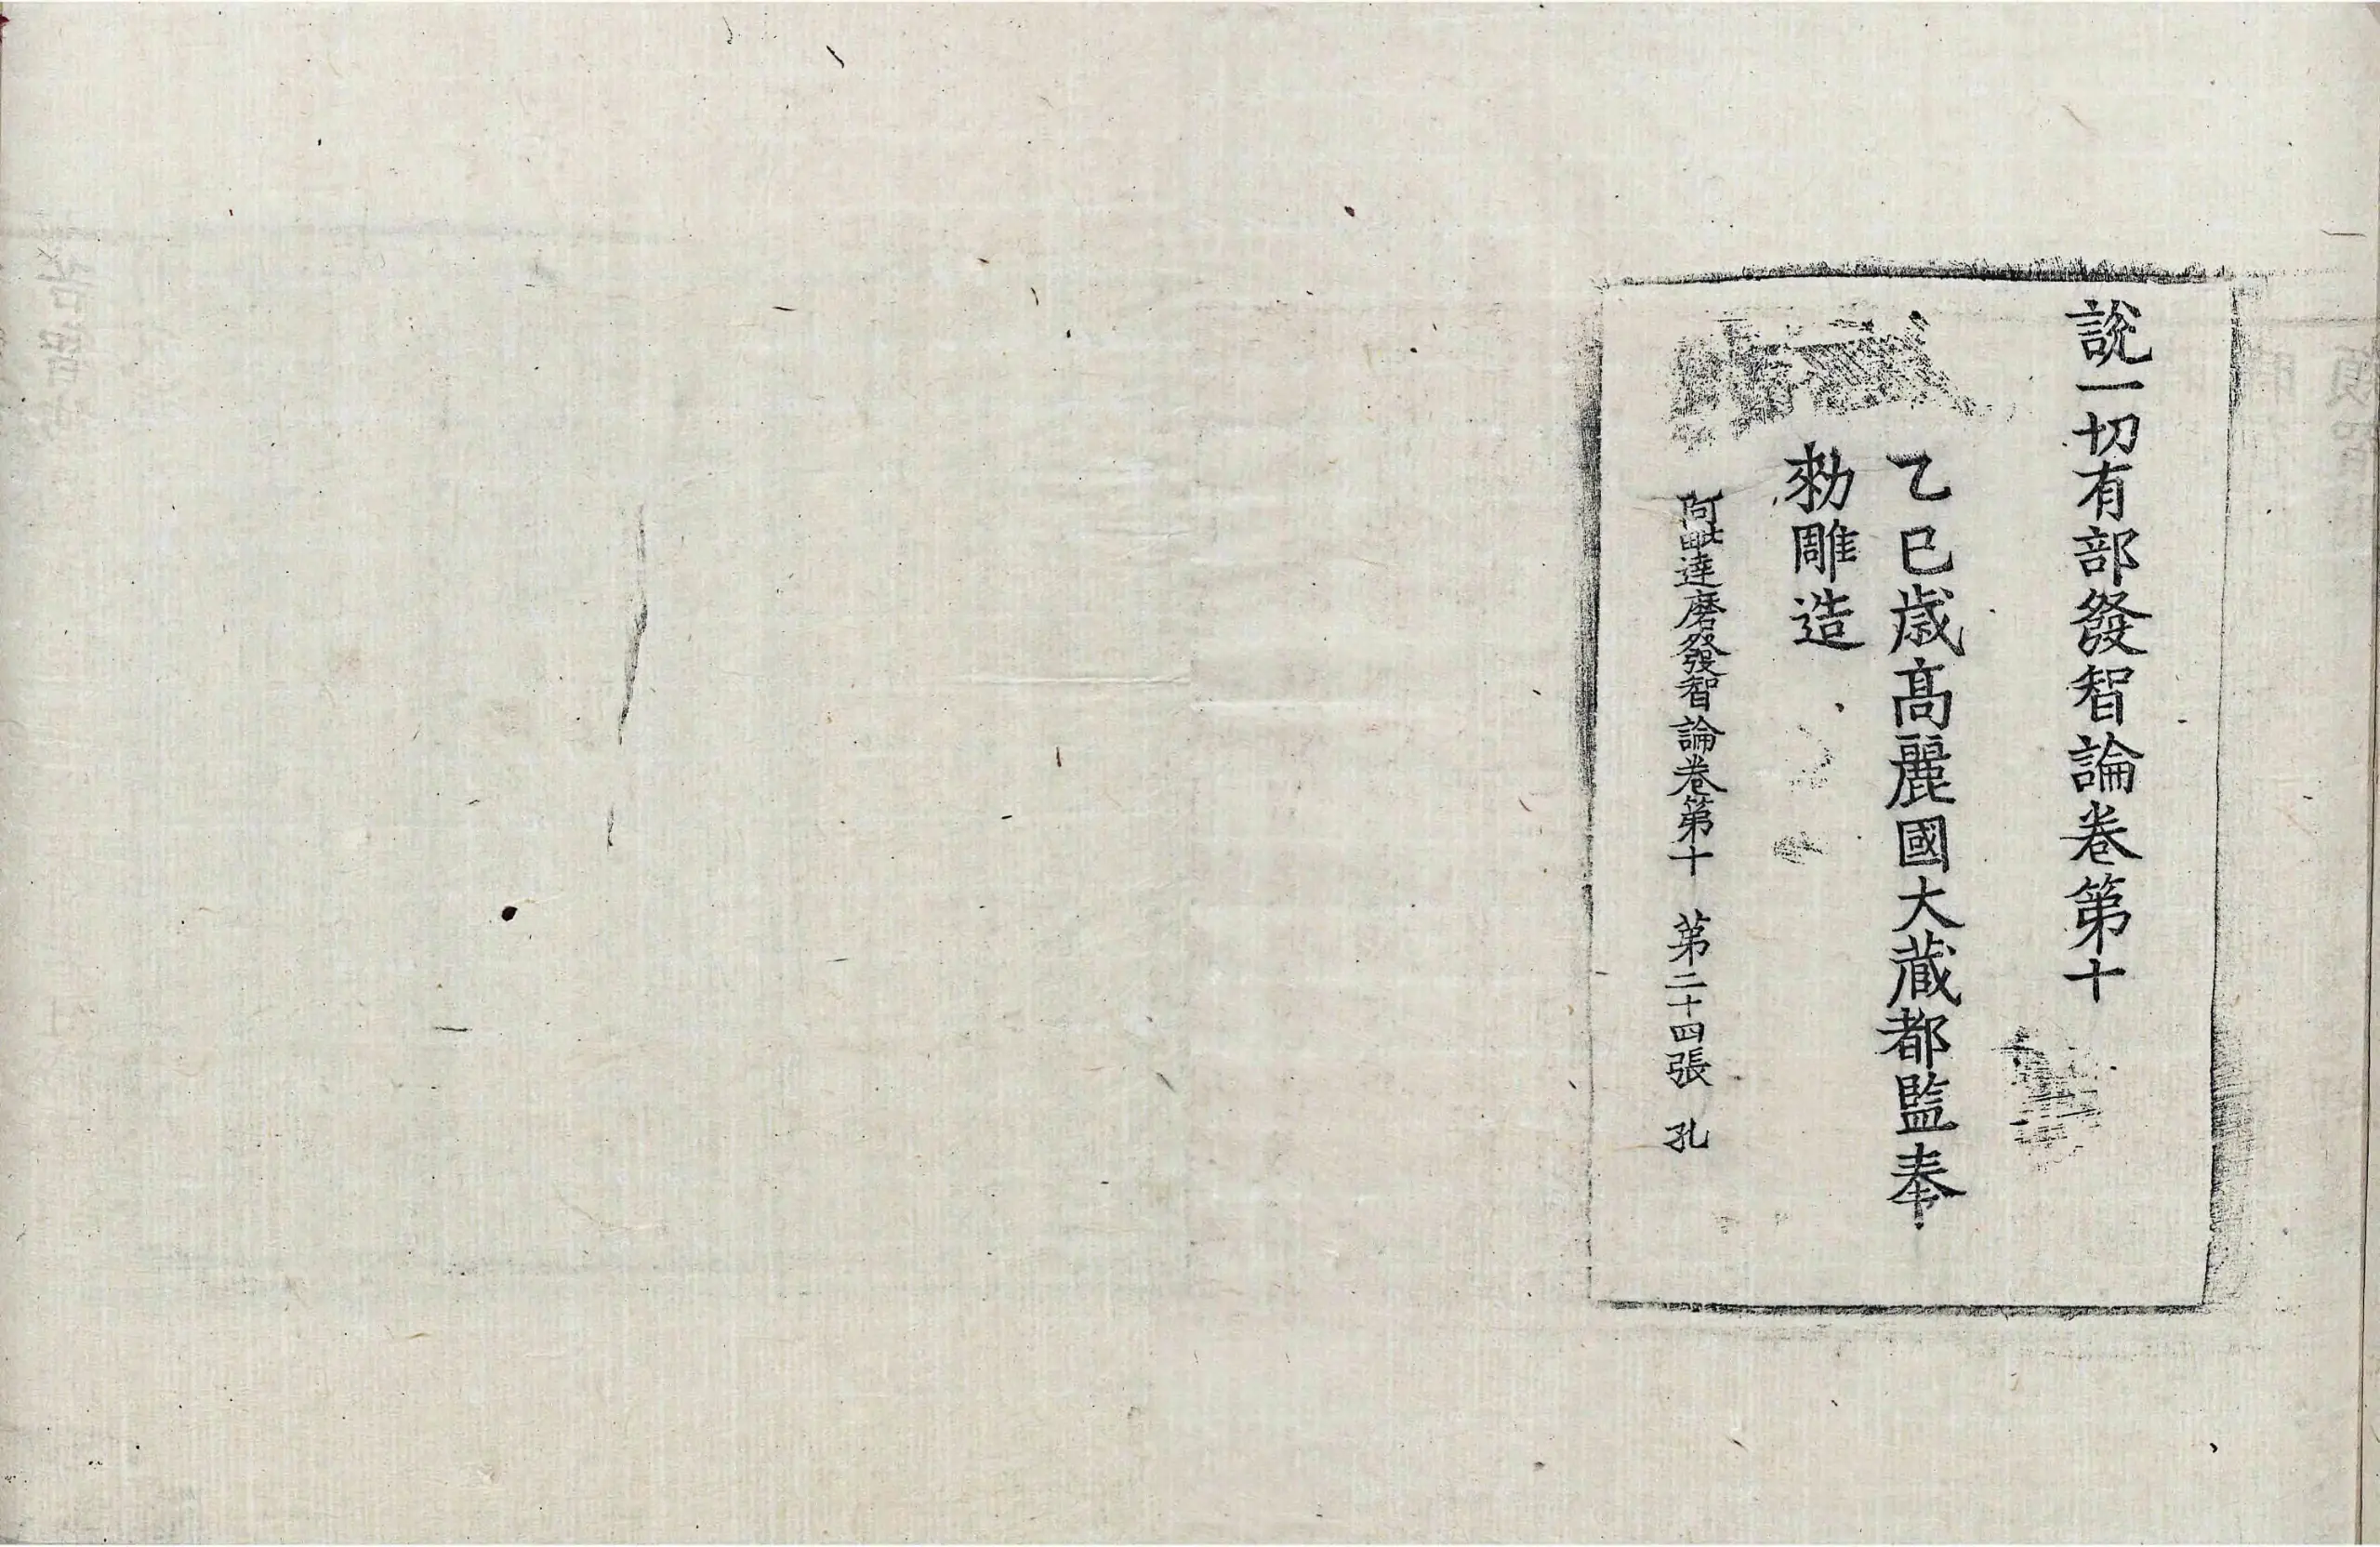 說一切有部發智論卷第十
乙巳歲高麗國大藏都監奉
勑雕造
阿毗達磨發智論卷第十 第二十四張 孔